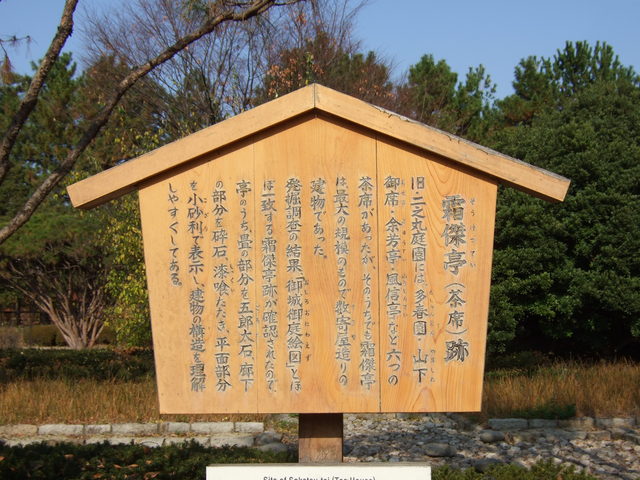 霜傑亭（茶席）跡
そうけつてい
旧・二之丸庭園には、多春園・山下
御席・余芳亭・風信亭など六つの
茶席があったが、そのうちでも霜傑亭
は最大の規模のもので数寄屋造りの
建物であった。
発掘調査の結果「御城御庭絵図」とほ
ぼ一致する霜傑亭跡が確認されたので、
亭のうち畳の部分を五郎太石、廊下
の部分を砕石、漆喰たたき、平面部分
を小砂利で表示し、建物の構造を理解
しやすくしてある。
Site of Soketsu-tei (Tea House)